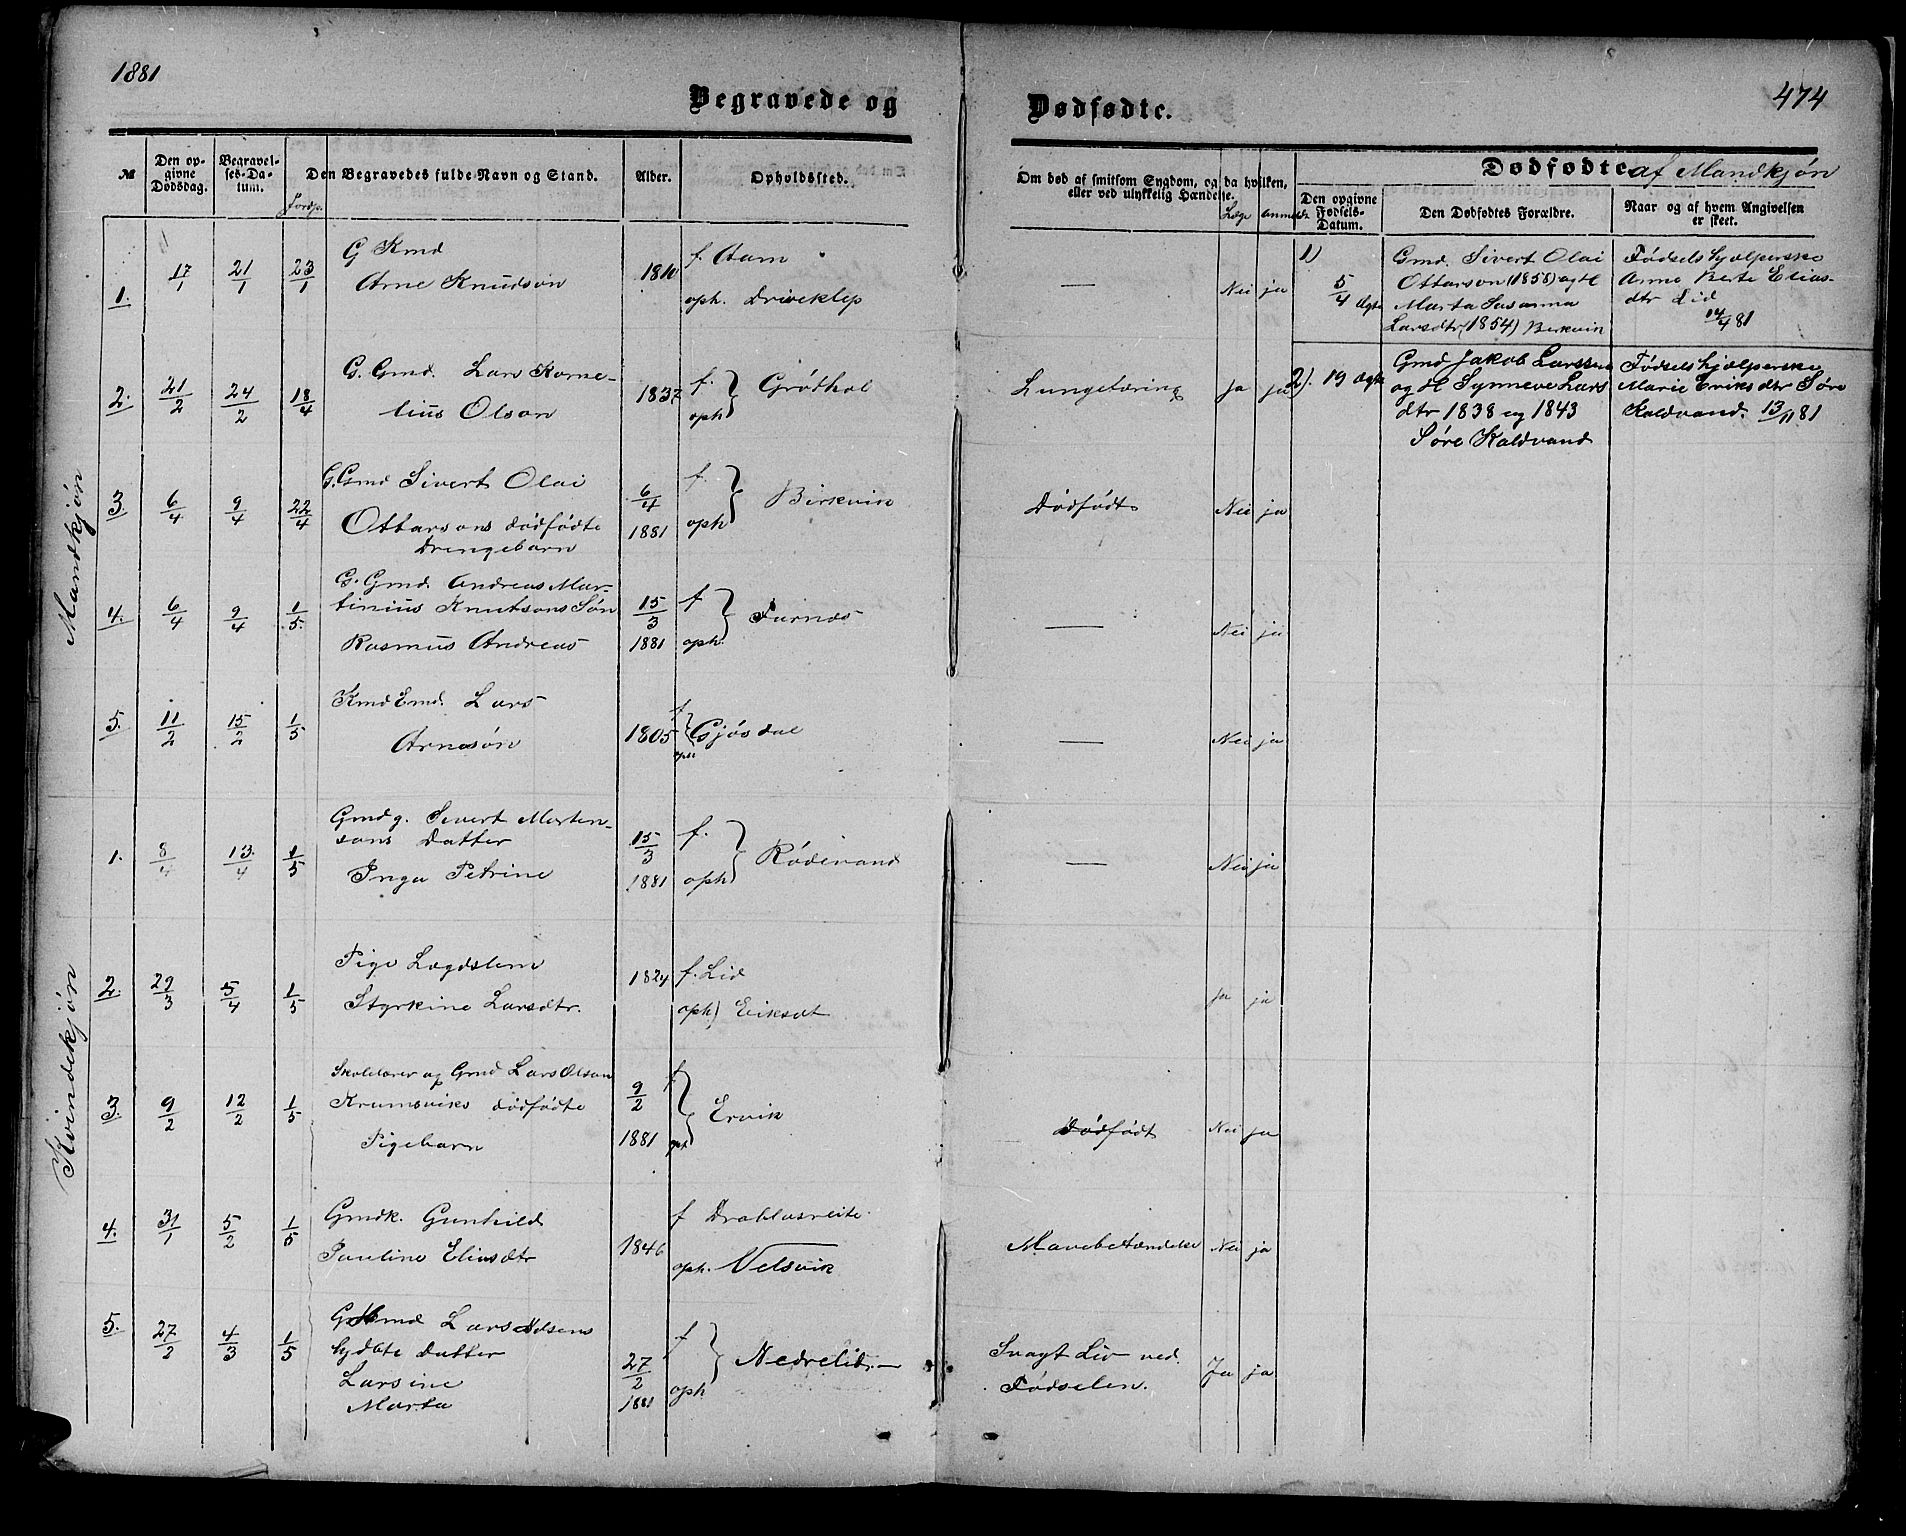 1881
474
Begravede og
Dødfødte.
№
Den op-
givne
Dødsdag.
Begravel-
ses-Da-
tum.
Jordp.
Den Begravedes fulde Navn og Stand.
Alder.
Opholdssted.
Om død af smitsom Sygdom, og da hvilken,
eller ved ulykkelig Hændelse.
Læge
Anmeldt
Dødfødte af Mandkjøn
Den opgivne
Fødsels-
Datum.
Den Dødfødtes Forældre.
Naar og af hvem Angivelsen
er skeet.
Mandkjøn
1. 17/1 21/1 23/1
G Kmd
Arne Knudsøn
1810
f. Aam
oph. Driveklep
— Nei ja
2. 21/2 24/2 18/4
G. Gmd. Lars Korne-
lius Olson
1837
f.
oph
Grøthol
Lungetæring ja ja
3. 6/4 9/4 22/4
G. Gmd Sivert Olai
Ottarsons dødfødte
Drengebarn
6/4
1881
f.
oph
Birkvik
Dødfødt Nei ja
4. 6/4 9/4 1/5.
G. Gmd. Andreas Mar-
tinius Knutsons Søn
Rasmus Andreas
15/3
1881
f
oph.
Furnes
— Nei ja
5. 11/2 15/2 1/5
Kmd Emd. Lars
Arnesøn
1805
f
oph
Gjøsdal
— Nei ja
Kvindekjøn
1. 8/4 13/4 1/5
Gmdg. Sivert Morten-
sons Datter
Inga Petrine
15/3
1881
f.
oph
Rødevand
— Nei ja
2. 29/3 5/4 1/5
Pige Lægdslem
Styrkine Larsdtr.
1824
f. Lid
oph) Eiksæt
ja ja
3. 9/2 12/2 1/5
Skolelærer og Gmd Lars Olson
Krumsviks dødfødte
Pigebarn
9/2
1881
f
oph
Ervik
Dødfødt Nei ja
4. 31/1 5/2 1/5
Gmdk. Gunhild
Pauline Eliasdtr
1846
f Drabløsreite
oph. Velsvik
Mavebetændelse Nei ja
5. 27/2 4/3 1/5
Lars Nilsens
hjdøbte Datter
Larsine
Marta
27/2
1881
f
oph
Nedrelid
Svagt Liv ved
Fødselen. Ja ja
1)
5/4 Ægte
Gmd. Sivert Olai
Ottarson (1858) og H
Marta Susanna
Larsdtr (1854) Berkvik
Fødselshjælperske
Anne Berte Elias-
dtr Lid
14/4 81
2). 19 Ægte
Gmd Jakob Larssen
og H Synneve Lars
dtr 1838 og 1843
Søre Kaldvand
Fødselshjælperske
Marie Eriksdtr Søre
Kaldvand. 13/11 81